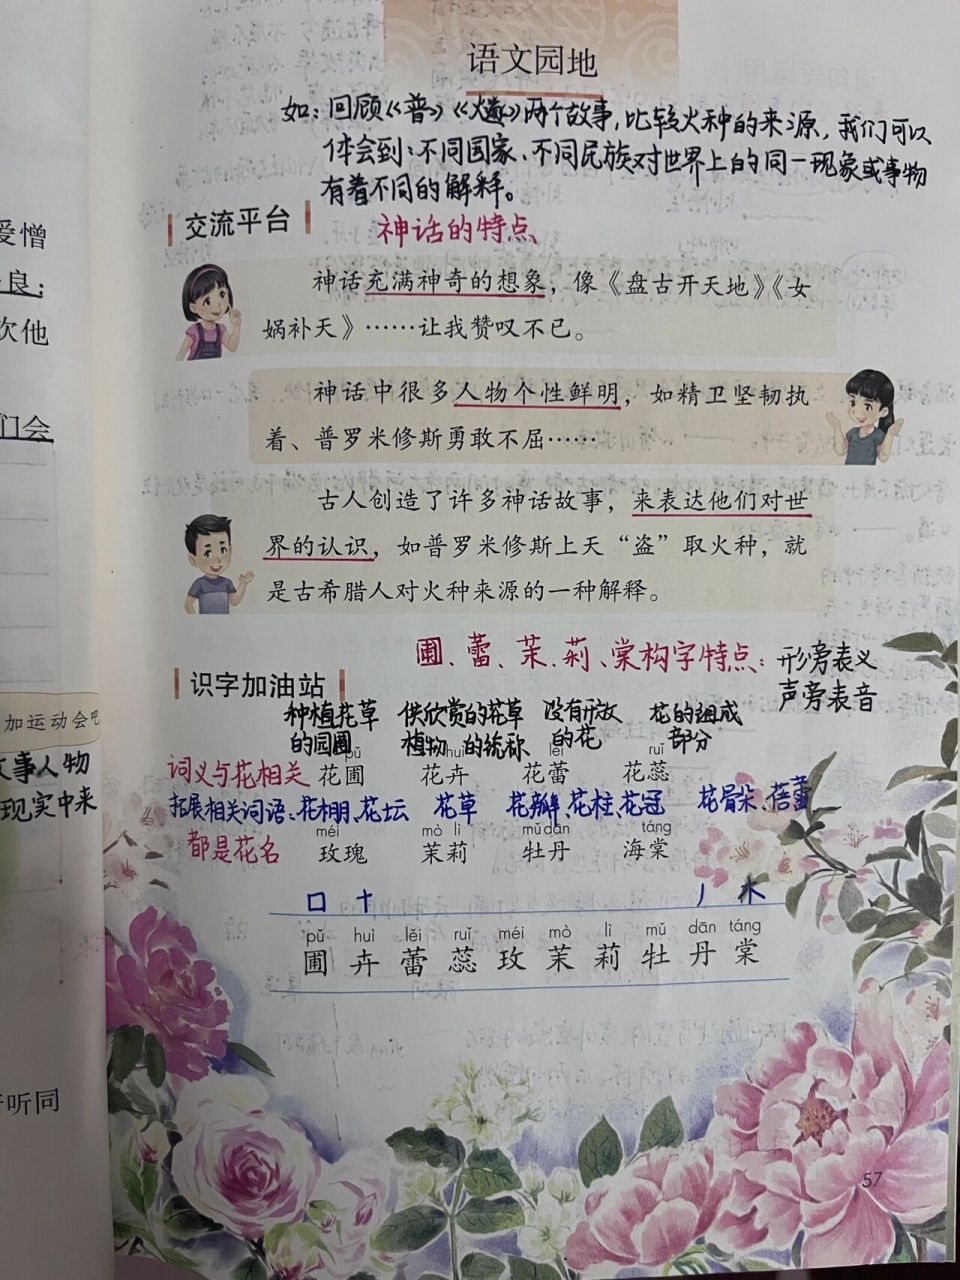 语文园地
如：回顾《普》《燧》两个故事，比较火种的来源，我们可以
体会到：不同国家、不同民族对世界上的同一现象或事物
有着不同的解释。
交流平台
神话的特点
神话充满神奇的想象，像《盘古开天地》《女
娲补天》……让我赞叹不已。
神话中很多人物个性鲜明，如精卫坚韧执
着、普罗米修斯勇敢不屈……
古人创造了许多神话故事，来表达他们对世
界的认识，如普罗米修斯上天“盗”取火种，就
是古希腊人对火种来源的一种解释。
圃、蕾、茉、莉、棠构字特点：形旁表义
声旁表音
识字加油站
种植花草 供欣赏的花草 没有开放 花的组成
的园圃 植物的统称 的花 部分
pǔ huì lěi ruǐ
词义与花相关 花圃 花卉 花蕾 花蕊
拓展相关词语：花棚、花坛 花草 花瓣、花柱、花冠 花骨朵、蓓蕾
méi mò lì mǔ dān táng
都是花名 玫瑰 茉莉 牡丹 海棠
口 十 丿 木
pǔ huì lěi ruǐ méi mò lì mǔ dān táng
圃 卉 蕾 蕊 玫 茉 莉 牡 丹 棠
57
爱憎
良；
次他
们会
加运动会吧
故事人物
现实中来
听同